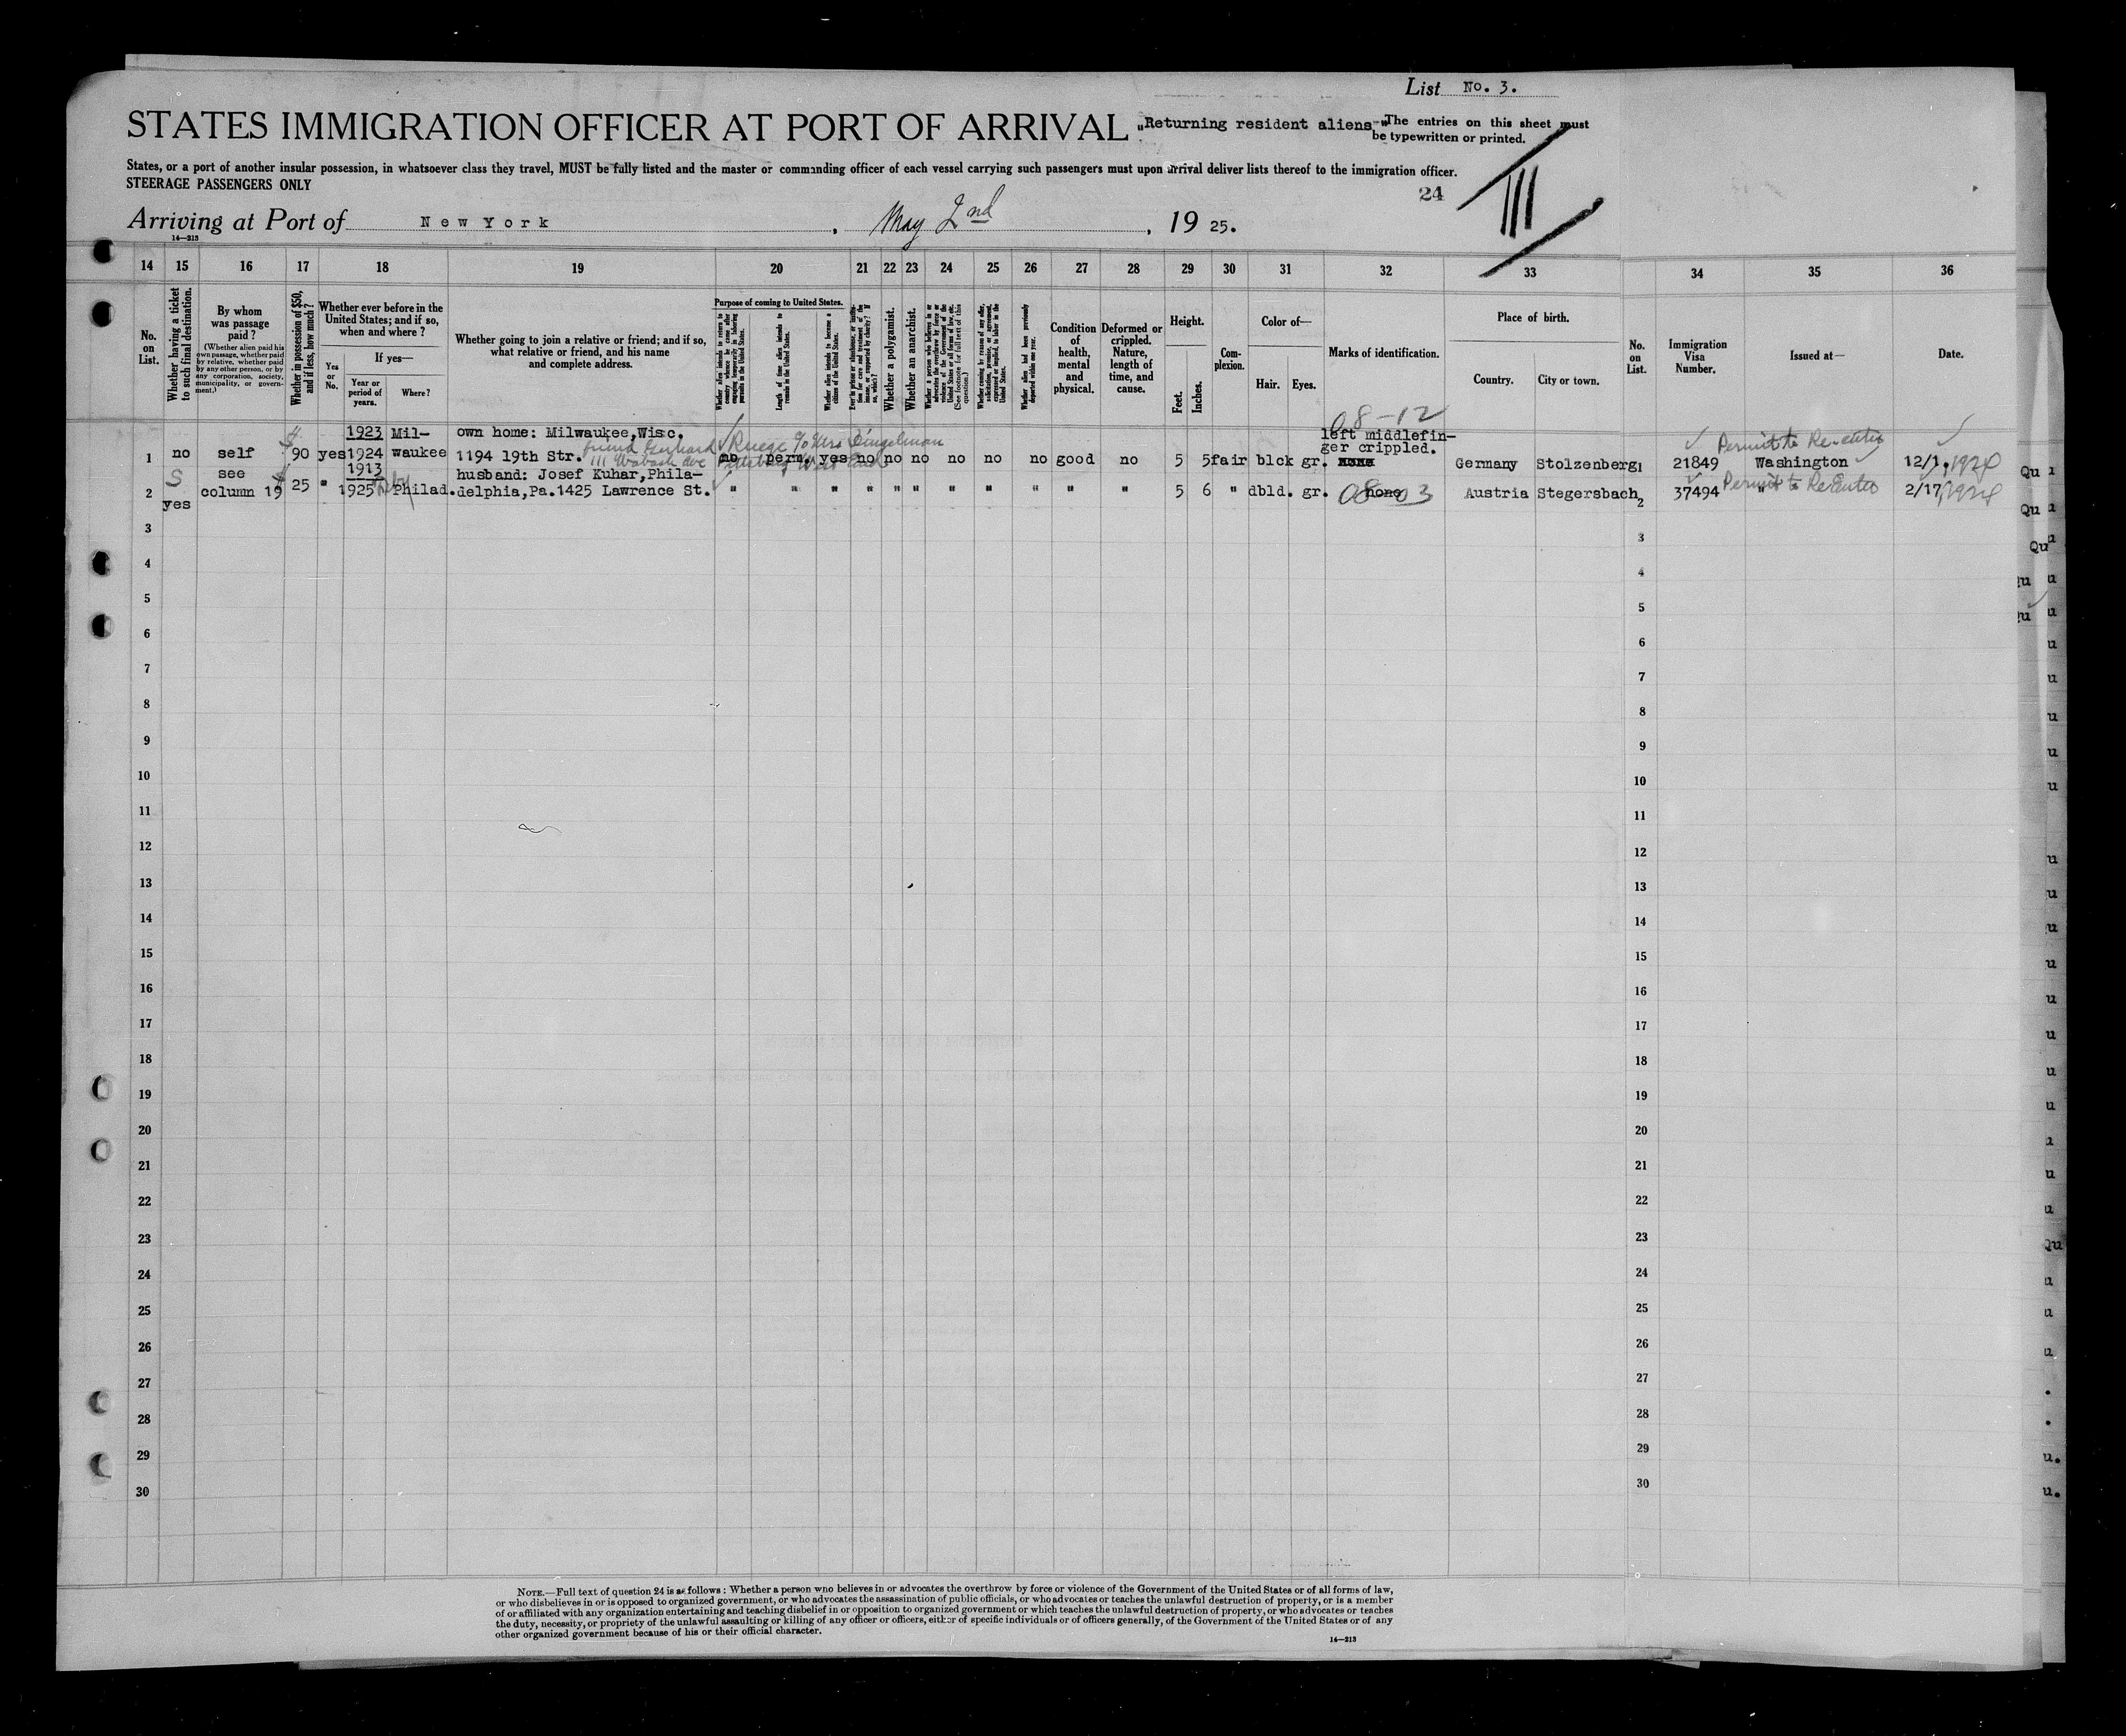 List No. 3.
STATES IMMIGRATION OFFICER AT PORT OF ARRIVAL „Returning resident aliens" The entries on this sheet must
be typewritten or printed.
States, or a port of another insular possession, in whatsoever class they travel, MUST be fully listed and the master or commanding officer of each vessel carrying such passengers must upon arrival deliver lists thereof to the immigration officer.
STEERAGE PASSENGERS ONLY
24
III
Arriving at Port of New York, May 2nd, 19 25.
14—213
14 15 16 17 18 19 20 21 22 23 24 25 26 27 28 29 30 31 32 33 34 35 36
No. on List.
Whether having a ticket to such final destination.
By whom was passage paid?
(Whether alien paid his own passage, whether paid by relative, whether paid by any other person, or by any corporation, society, municipality, or government.)
Whether in possession of $50, and if less, how much?
Whether ever before in the United States; and if so, when and where?
Yes or No.
If yes—
Year or period of years.
Where?
Whether going to join a relative or friend; and if so, what relative or friend, and his name and complete address.
Purpose of coming to United States.
Whether alien intends to return to country whence he came after engaging temporarily in laboring pursuits in the United States.
Length of time alien intends to remain in the United States.
Whether alien intends to become a citizen of the United States.
Ever in prison or almshouse, or institution for care and treatment of the insane, or supported by charity? If so, which?
Whether a polygamist.
Whether an anarchist.
Whether a person who believes in or advocates the overthrow by force or violence of the Government of the United States or all forms of law, etc. (See footnote for full text of this question.)
Whether coming by reason of any offer, solicitation, promise, or agreement, expressed or implied, to labor in the United States.
Whether alien had been previously deported within one year.
Condition of health, mental and physical.
Deformed or crippled. Nature, length of time, and cause.
Height.
Feet.
Inches.
Complexion.
Color of—
Hair.
Eyes.
Marks of identification.
Place of birth.
Country.
City or town.
No. on List.
Immigration Visa Number.
Issued at—
Date.
08-12
1923 Mil- own home: Milwaukee, Wisc. left middlefin- Permit to Re-enter
ger crippled.
1 no self $ 90 yes 1924 waukee 1194 19th Str. friend Gerhard Ruege c/o Mrs Dingelman no perm. yes no no no no no no good no 5 5 fair blck gr. none Germany Stolzenberg 1 21849 Washington 12/1, 1924
111 Wabash Ave
S see 1913 husband: Josef Kuhar, Phila- Permit to Re Enter
2 yes column 19 $ 25 " 1925 Philad. delphia, Pa. 1425 Lawrence St. " " " " " " " " " " " 5 6 " dbld. gr. none 08-03 Austria Stegersbach 2 37494 " 2/17, 1924
Qu
Qu
Qu
3 3
4 4
5 5
6 6
7 7
8 8
9 9
10 10
11 11
12 12
13 13
14 14
15 15
16 16
17 17
18 18
19 19
20 20
21 21
22 22
23 23
24 24
25 25
26 26
27 27
28 28
29 29
30 30
NOTE.—Full text of question 24 is as follows: Whether a person who believes in or advocates the overthrow by force or violence of the Government of the United States or of all forms of law,
or who disbelieves in or is opposed to organized government, or who advocates the assassination of public officials, or who advocates or teaches the unlawful destruction of property, or is a member
of or affiliated with any organization entertaining and teaching disbelief in or opposition to organized government or which teaches the unlawful destruction of property, or who advocates or teaches
the duty, necessity, or propriety of the unlawful assaulting or killing of any officer or officers, either of specific individuals or of officers generally, of the Government of the United States or of any
other organized government because of his or their official character.
14—213